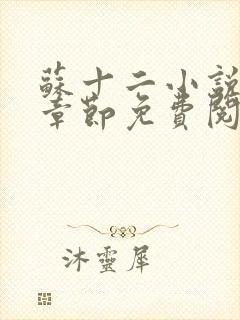 蘇十二小說
章節免費閱
沐靈犀